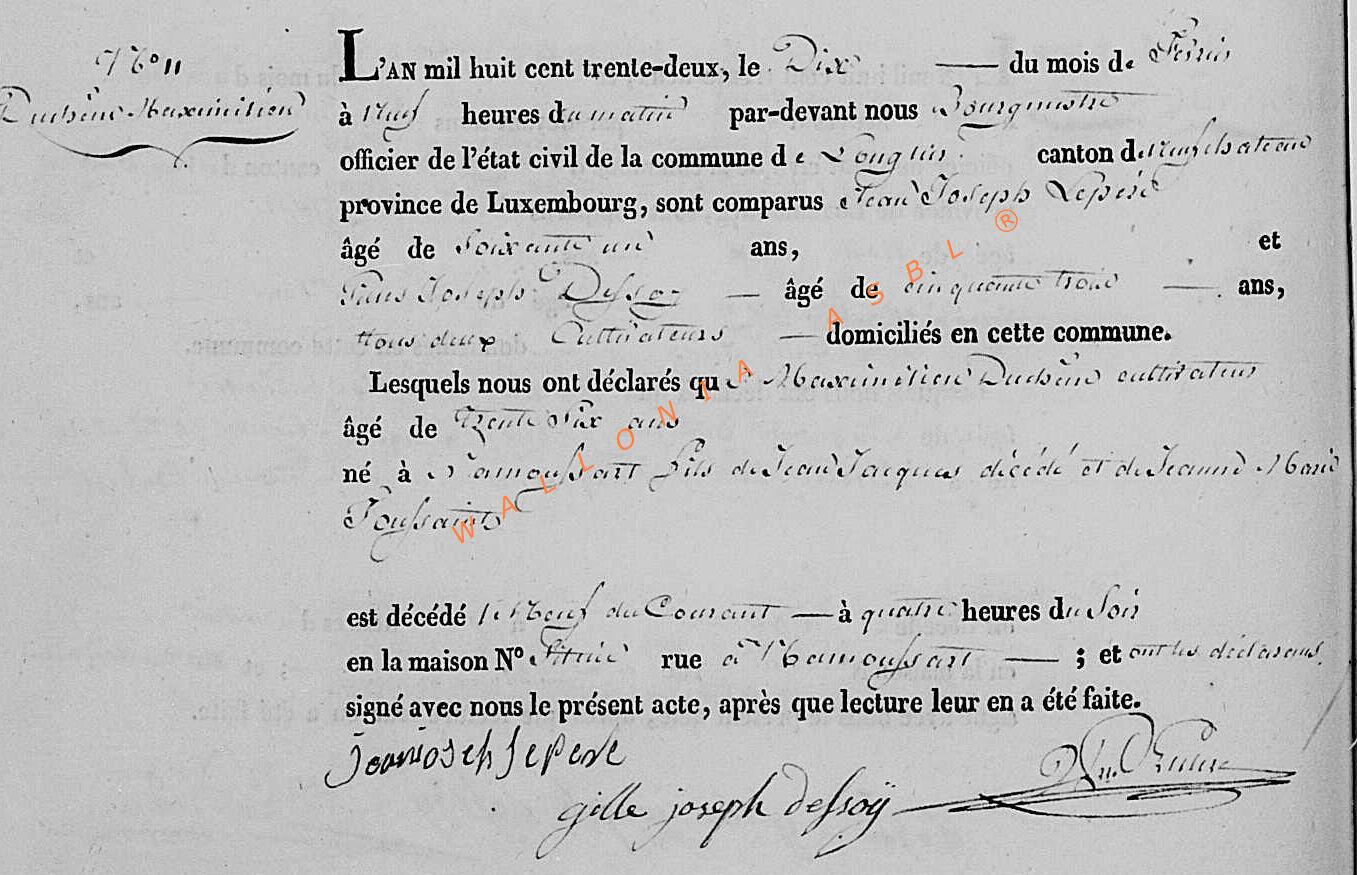 N° 11
Duchêne Maximilien
L'AN mil huit cent trente-deux, le Dix — du mois de
à Neuf heures du matin par-devant nous Bourgmestre
officier de l'état civil de la commune de Longlier canton de Neufchateau
province de Luxembourg, sont comparus Jean Joseph Lepere
âgé de Soixante un ans, et
Joseph Dessoy — âgé de cinquante trois — ans,
tous deux Cultivateurs — domiciliés en cette commune.
Lesquels nous ont déclarés que Maximilien Duchêne cultivateur
âgé de Trente Six ans
né à Namoussart fils de Jean Jacques décédé et de Jeanne Marie
Toussaint
est décédé le Neuf du Courant — à quatre heures du Soir
en la maison N° Située rue à Namoussart — ; et ont les déclarans
signé avec nous le présent acte, après que lecture leur en a été faite.
jean joseph lepere
gille joseph dessoÿ
WALLONIA ASBL ®